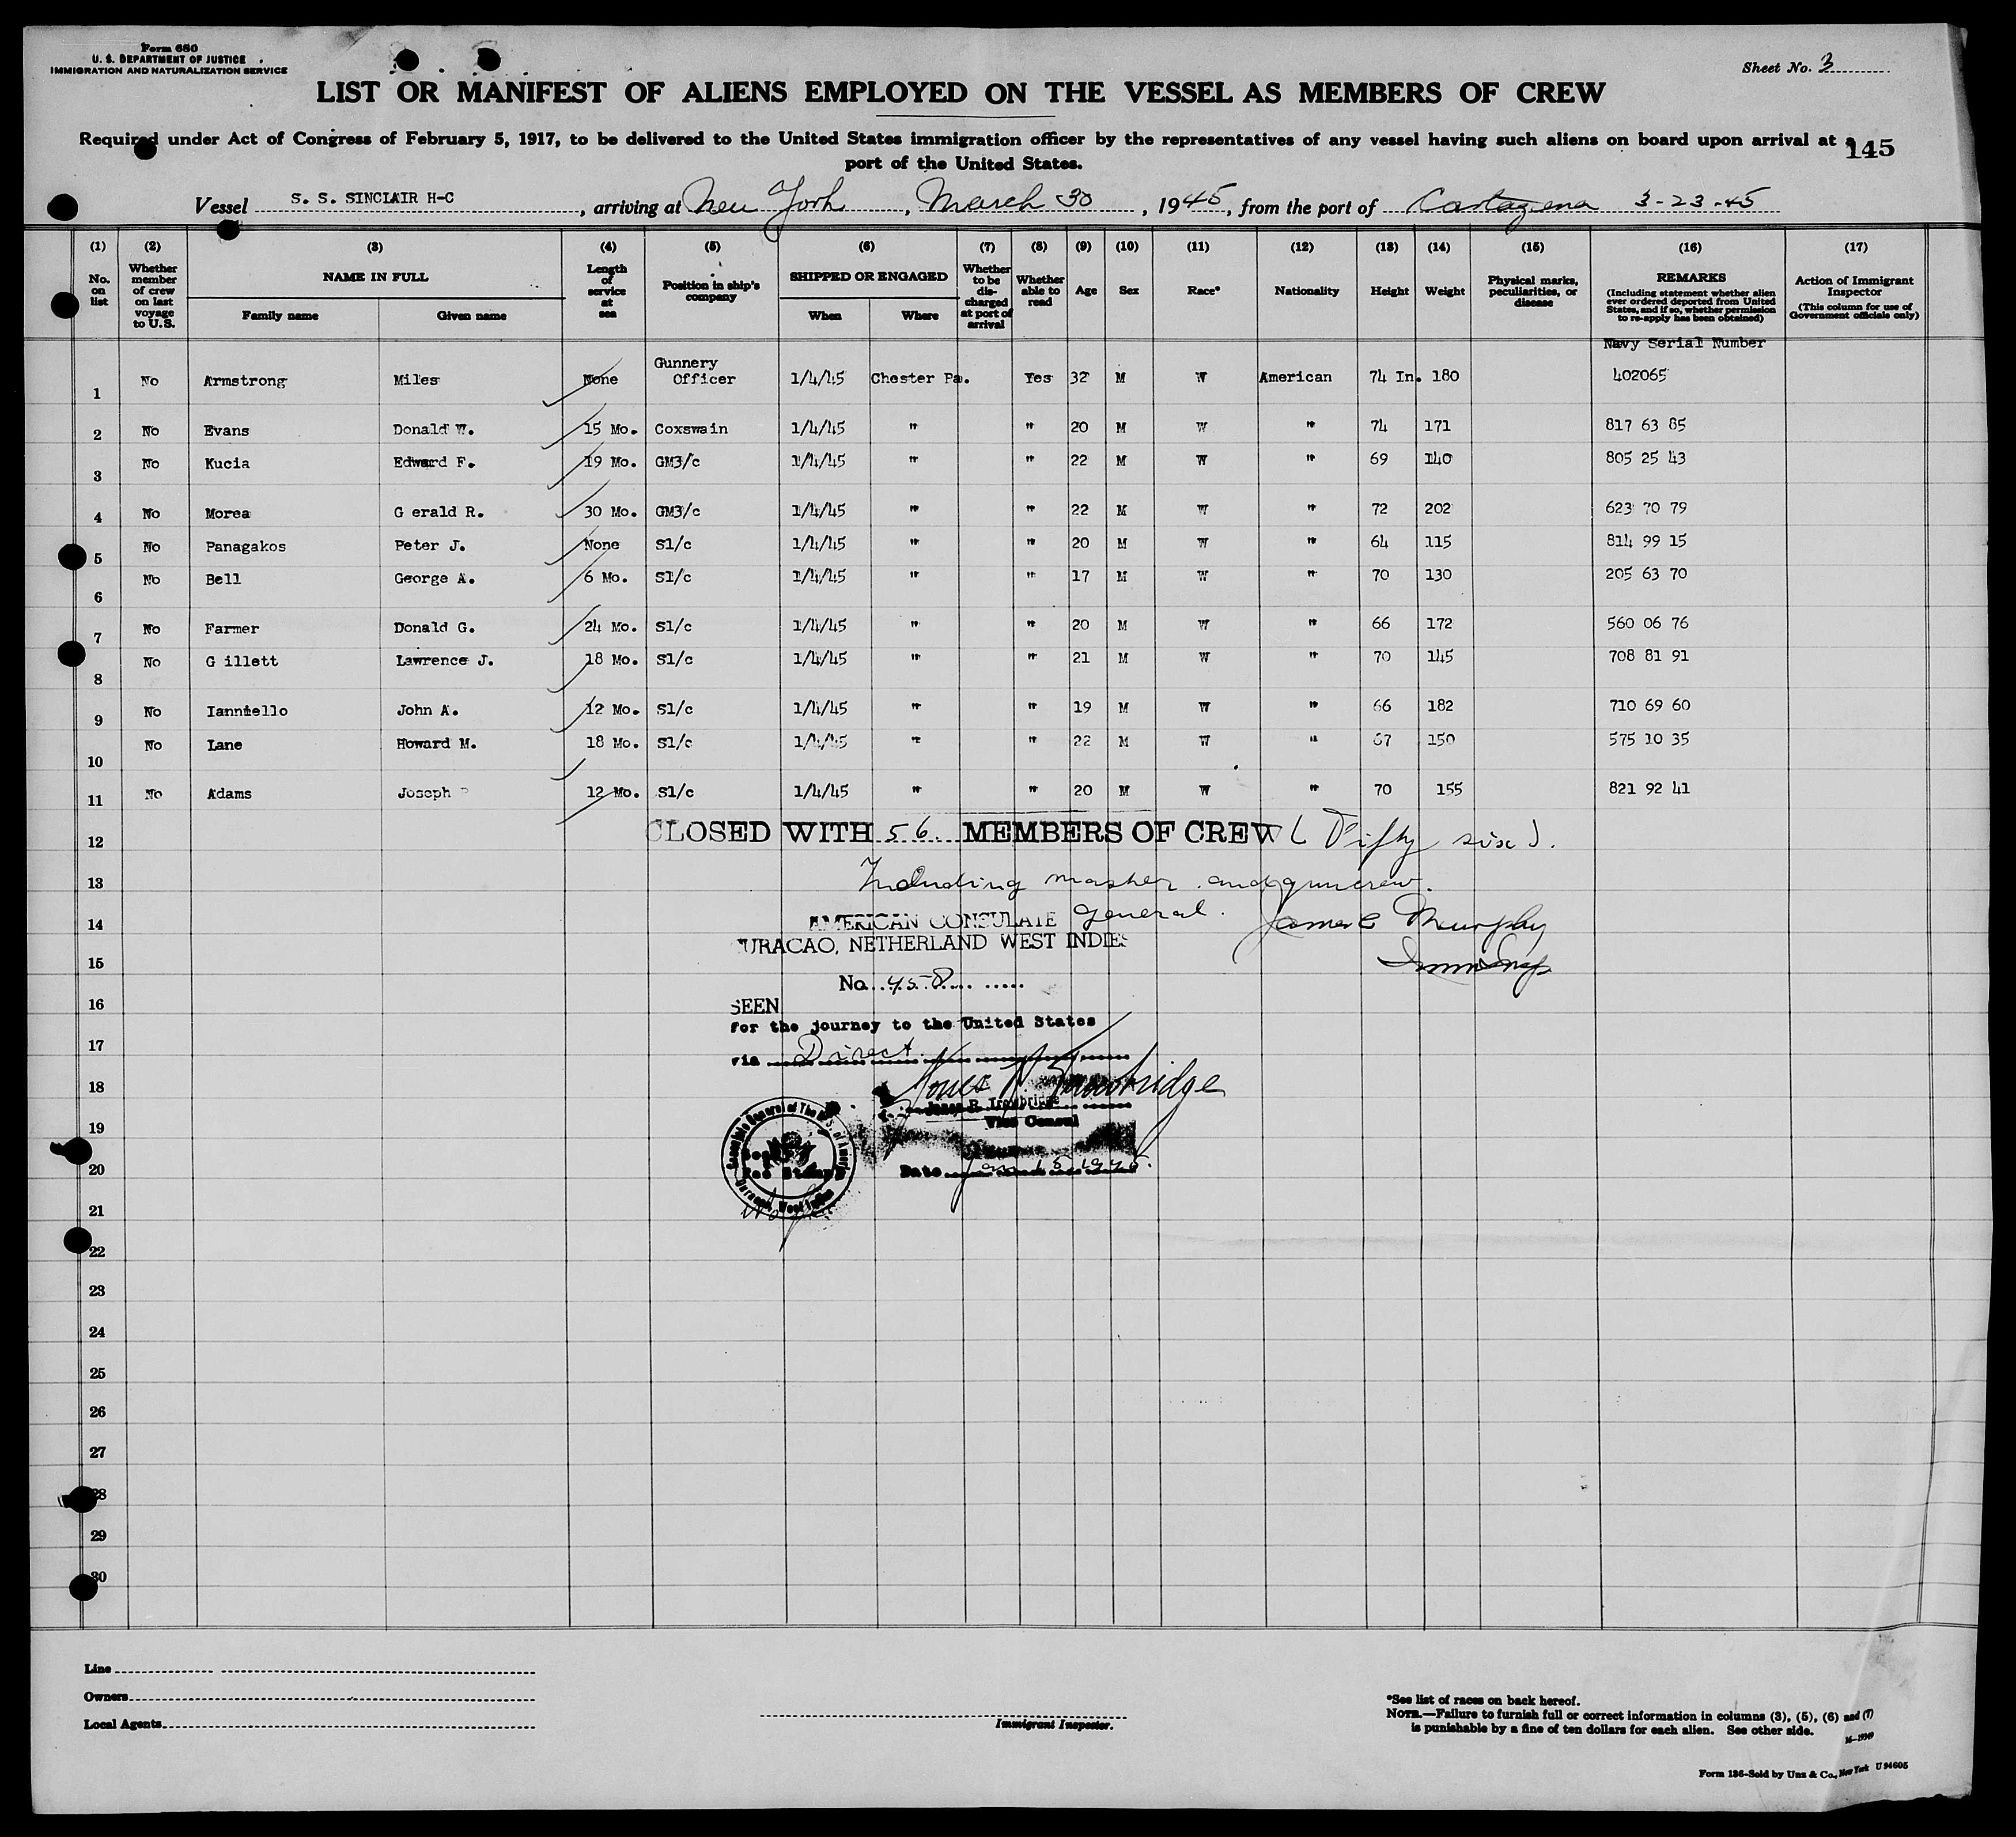 Form 680
U. S. DEPARTMENT OF JUSTICE
IMMIGRATION AND NATURALIZATION SERVICE
Sheet No. 3
LIST OR MANIFEST OF ALIENS EMPLOYED ON THE VESSEL AS MEMBERS OF CREW
Required under Act of Congress of February 5, 1917, to be delivered to the United States immigration officer by the representatives of any vessel having such aliens on board upon arrival at a
port of the United States.
145
Vessel S. S. SINCLAIR H-C, arriving at New York, March 30, 1945, from the port of Cartagena 3-23-45
(1) No. on list
(2) Whether member of crew on last voyage to U.S.
(3) NAME IN FULL Family name Given name
(4) Length of service at sea
(5) Position in ship's company
(6) SHIPPED OR ENGAGED When Where
(7) Whether to be discharged at port of arrival
(8) Whether able to read
(9) Age
(10) Sex
(11) Race*
(12) Nationality
(13) Height
(14) Weight
(15) Physical marks, peculiarities, or disease
(16) REMARKS (Including statement whether alien ever ordered deported from United States, and if so, whether permission to re-apply has been obtained)
(17) Action of Immigrant Inspector (This column for use of Government officials only)
Navy Serial Number
1 No Armstrong Miles None Gunnery Officer 1/4/45 Chester Pa. Yes 32 M W American 74 In. 180 402065
2 No Evans Donald W. 15 Mo. Coxswain 1/4/45 " " 20 M W " 74 171 817 63 85
3 No Kucia Edward F. 19 Mo. GM3/c 1/4/45 " " 22 M W " 69 140 805 25 43
4 No Morea G erald R. 30 Mo. GM3/c 1/4/45 " " 22 M W " 72 202 623 70 79
5 No Panagakos Peter J. None S1/c 1/4/45 " " 20 M W " 64 115 814 99 15
6 No Bell George A. 6 Mo. S1/c 1/4/45 " " 17 M W " 70 130 205 63 70
7 No Farmer Donald G. 24 Mo. S1/c 1/4/45 " " 20 M W " 66 172 560 06 76
8 No G illett Lawrence J. 18 Mo. S1/c 1/4/45 " " 21 M W " 70 145 708 81 91
9 No Ianniello John A. 12 Mo. S1/c 1/4/45 " " 19 M W " 66 182 710 69 60
10 No Lane Howard M. 18 Mo. S1/c 1/4/45 " " 22 M W " 67 150 575 10 35
11 No Adams Joseph P 12 Mo. S1/c 1/4/45 " " 20 M W " 70 155 821 92 41
12 CLOSED WITH 56. MEMBERS OF CREW (Fifty six).
13 Including master and guncrew.
14 AMERICAN CONSULATE General. James C Murphy
15 CURACAO, NETHERLAND WEST INDIES Imm Insp
No. 458
16 SEEN
for the journey to the United States
17 via Direct
18 Jones R. Trowbridge
Jones R. Trowbridge
19 Vice Consul
20 Date Jan 15 1945.
21
22
23
24
25
26
27
28
29
30
Line
Owners
Local Agents
Immigrant Inspector.
*See list of races on back hereof.
NOTE.—Failure to furnish full or correct information in columns (3), (5), (6) and (7)
is punishable by a fine of ten dollars for each alien. See other side.
16—19340
Form 186-Sold by Unz & Co., New York U 94605